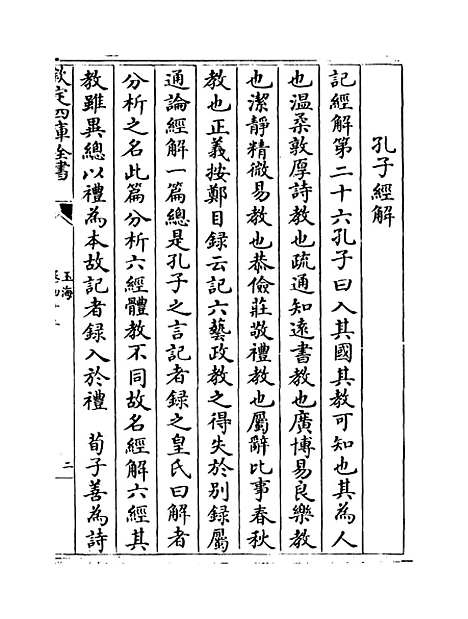 孔子經解
記經解第二十六孔子曰入其國其教可知也其為人
也温柔敦厚詩教也疏通知遠書教也廣博易良樂教
也潔靜精微易教也恭儉莊敬禮教也屬辭比事春秋
教也正義按鄭目録云記六藝政教之得失於別録屬
通論經解一篇總是孔子之言記者録之皇氏曰解者
分析之名此篇分析六經體教不同故名經解六經其
教雖異總以禮為本故記者録入於禮 荀子善為詩
欽定四庫全書
玉海
二